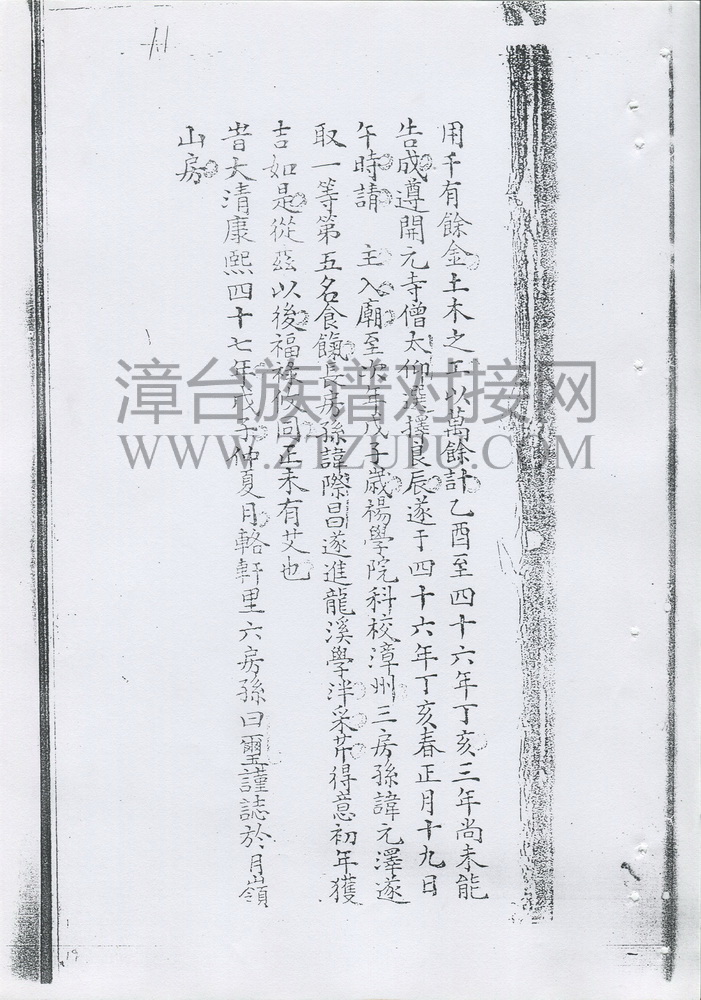 用千有餘金土木之工以萬餘計乙酉至四十六年丁亥三年尚未能
告成遵開元寺僧太仰選擇良辰遂于四十六年丁亥春正月十九日
午時請 主入廟至次年戊子歲楊學院科校漳州三房孫諱元澤遂
取一等第五名食餼長房孫諱際昌遂進龍溪學泮采芹得意初年獲
吉如是從茲以後福祿攸同正未有艾也
旹大清康熙四十七年戊子仲夏月輅軒里六房孫曰璽謹誌於月嶺
山房
漳台族谱对接网
WWW.ZTZUPU.COM
19